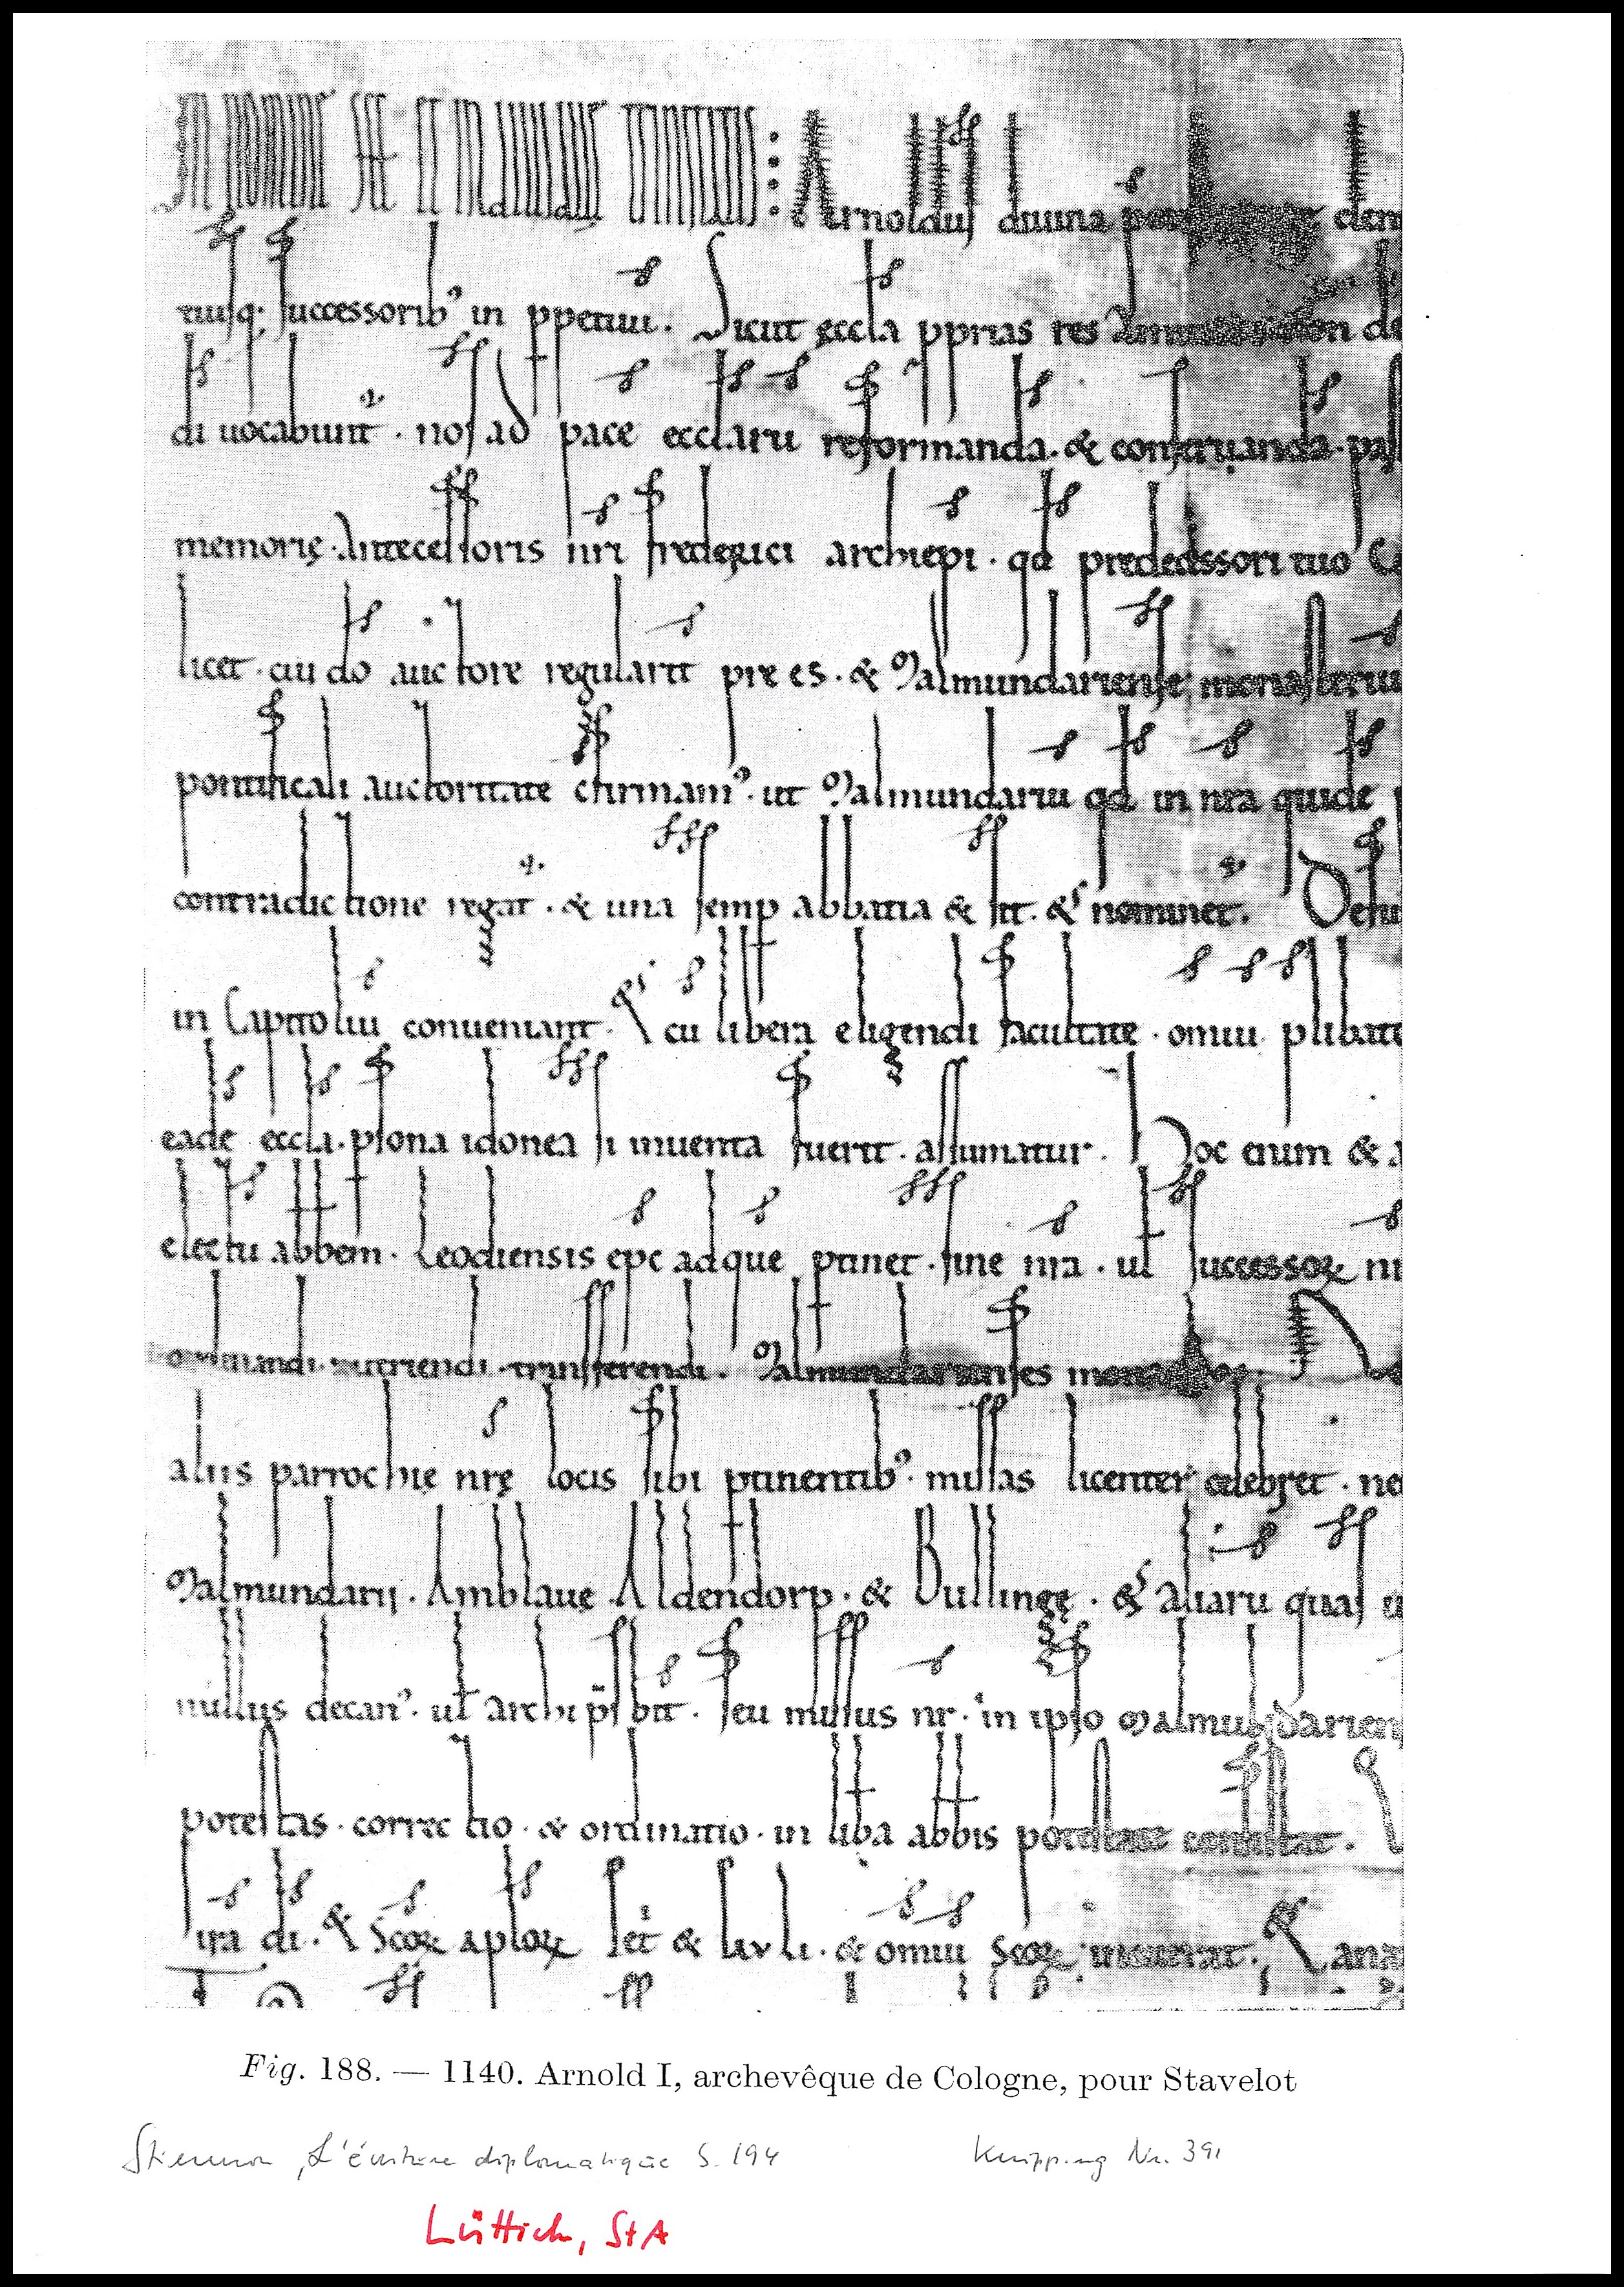 In nomine scę et indiuiduę trinitatis : Arnoldus diuina clem
tuisq; successorib' in ppetuu. Sicut ęccla pprias res de
di uocabunt. nos ad pace ecclaru reformanda. & conseruanda. pas
memorię. Antecessoris nri frederici archiepi. qd predecessori tuo
licet. cui do auctore regularit pre es. & Malmundariense monasteriu
pontificali auctoritate cfirmam'. ut Malmundariu qd in nra quide
contradictione regat. & una semp abbatia & sit. & nominet. Defu
in Capitoliu conueniant. & cu libera eligendi facultate. omiu plibate
eade eccla. psona idonea si inuenta fuerit. assumatur. Hoc enim & a
electu abbem. Leodiensis epc ad que ptinet. sine nra. ul successoꝝ nr
ordinandi. nutriendi. transferendi. Malmundarienses
aliis parrochię nrę locis sibi ptinentib'. missas licenter celebret. ne
Malmundarii. Amblauę Aldendorp. & Bullingę. & aliaru quas
nullus decan'. ul archi psbit. seu missus nr. in ipso Malmundarien
potestas. correctio. & ordinatio. in liba abbis potestate consistat.
ira di. & Scoꝝ aploꝝ Pet & Pavli. & omiu Scoꝝ incurrat. & ana
Fig. 188. — 1140. Arnold I, archevêque de Cologne, pour Stavelot
Stiennon, L'écriture diplomatique S. 194 Knipping Nr. 391
Lüttich, StA